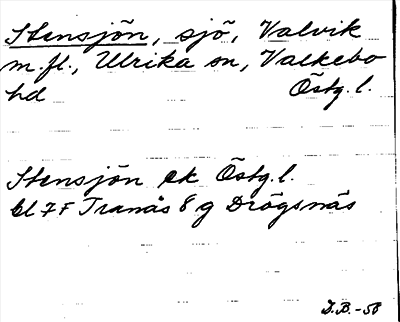 Stensjön, sjö, Valvik
m.fl., Ulrika sn, Valkebo
hd Östg. l.
Stensjön ek Östg. l.
bl 7F Tranås 8 g Drögsnäs
D.B.-56